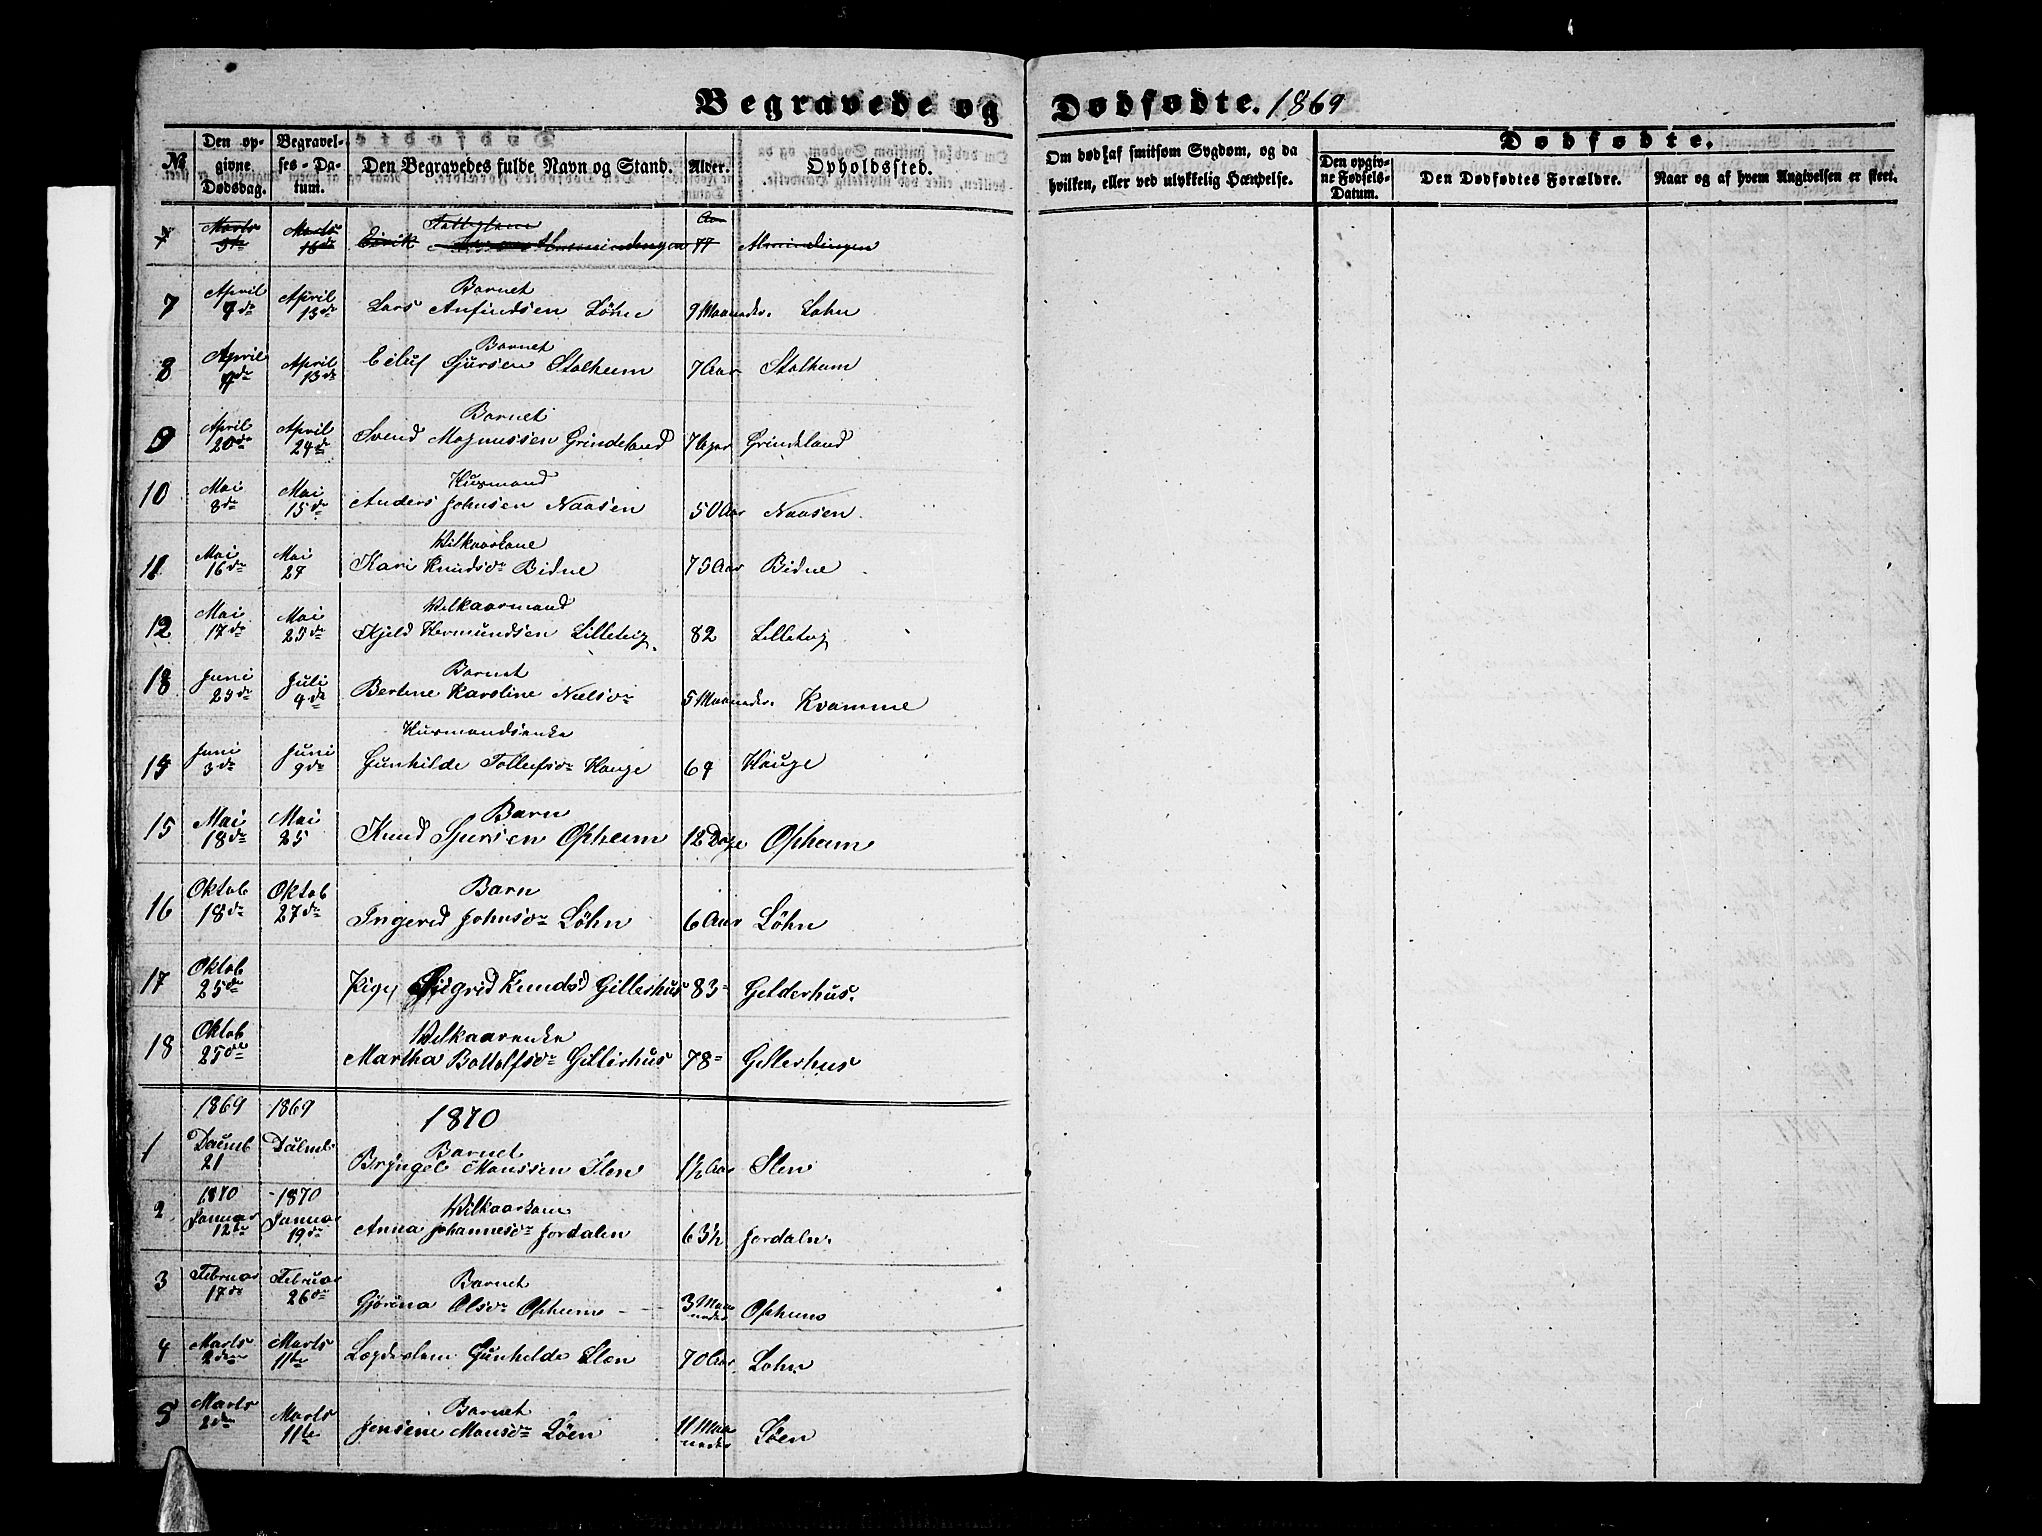 Begravede og Dødfødte. 1869
No
Den opgivne Dødsdag.
Begravelses-Datum.
Den Begravedes fulde Navn og Stand.
Alder.
Opholdssted.
Om død af smitsom Sygdom, og da hvilken, eller ved ulykkelig Hændelse.
Dødfødte.
Den opgivne Fødsels-Datum.
Den Dødfødtes Forældre.
Naar og af hvem Angivelsen er skeet.
7 Marts Marts Eirik Almindingen 77 Almindingen
Barnet
7 April 7de April 13de Lars Anfindsen Löhne 9 Maaneder. Lohn
Barnet
8 April 9de April 13de Eiluf Sjursen Stalheim 7 Aar Stalheim
Barnet
9 April 20de April 24de Svend Magnussen Grindeland 7 Aar Grindeland
Husmand
10 Mai 8de Mai 15de Anders Johnsen Naasen 50 Aar Naasen
Vilkaarkone
11 Mai 16de Mai 24 Kari Knudsdr Bidne 75 Aar Bidne
Vilkaarmand
12 Mai 17de Mai 25de Kjeld Hermundsen Lilletvig 82 Lilletvig
Barnet
13 Juni 29de Juli 4de Bertine Karoline Nielsdr 5 Maaneder. Kvamme
Husmandsenke
14 Juni 3de Juni 9de Gunhilde Tollefsdr Hauge 64 Hauge
Barn
15 Mai 18de Mai 25 Knud Sjursen Opheim 12 Dage Opheim
Barn
16 Oktob 18de Oktob 27de Ingerid Johnsdr Löhn 6 Aar Löhn
17 Oktob 25de Pige Sigrid Knudsd Gillerhus 83 Gelderhus.
Vilkaarenke
18 Oktob 25de Martha Bottolfsdr Gillerhus 78 Gillerhus
1869 1869 1870
Barnet
1 Decemb 21 Bryngel Monssen Slen 1½ Aar Slen
1870 1870 Vilkaarkone
2 Januar 12te Januar 19de Anna Johannesdr Jordalen 63½ Jordaln
Barnet
3 Februar 17de Februar 26de Gjörina Olsdr Opheim 3 Maaneder Opheim
4 Marts 2den Marts 11te Lægdslem Gunhilde Slen 70 Aar Lohn
Barnet
5 Marts 2de Marts 11te Jensine Monsdr Löen 11 Maaneder Löen